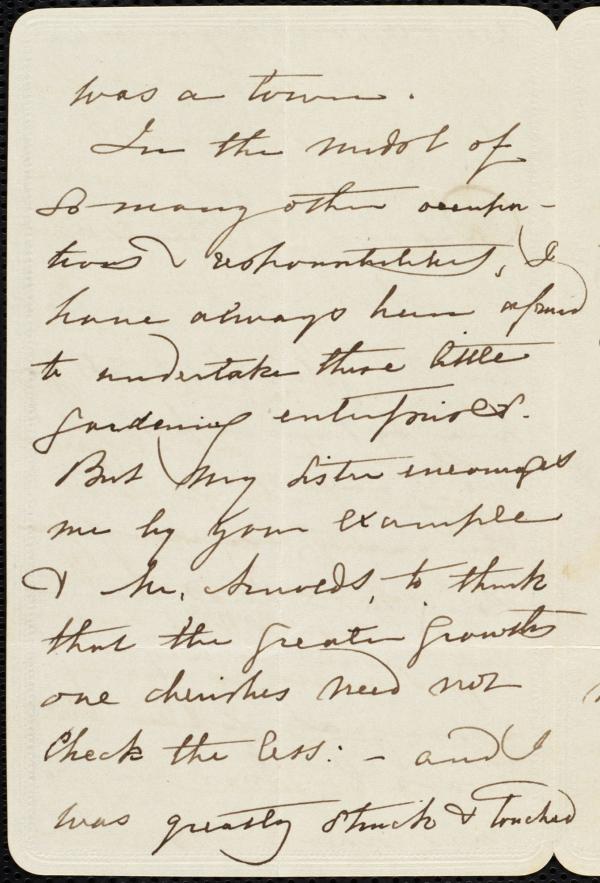 was a town.
In the midst of
so many other occupa-
tions & responsibilities, I
have always been afraid
to undertake these little
gardening enterprises.
But my sister encourages
me by your example
& Mr. Arnold's, to think
that the greater growths
one cherishes need not
check the less: - and I
was greatly struck & touched